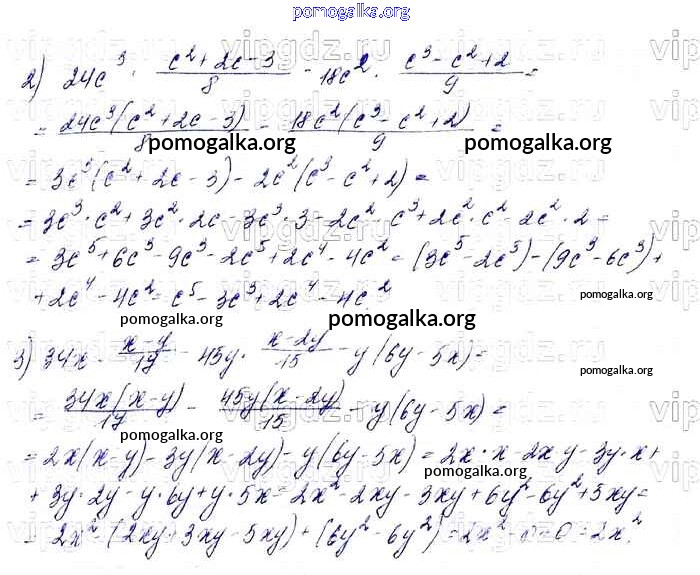 pomogalka.org
2) 24c³ · (c² + 2c - 3)/8 - 18c² · (c³ - c² + 2)/9 =
= 24c³(c² + 2c - 3)/8 - 18c²(c³ - c² + 2)/9 =
pomogalka.org pomogalka.org
= 3c³(c² + 2c - 3) - 2c²(c³ - c² + 2) =
= 3c³ · c² + 3c² · 2c - 3c³ · 3 - 2c² · c³ + 2c² · c² - 2c² · 2 =
= 3c⁵ + 6c³ - 9c³ - 2c⁵ + 2c⁴ - 4c² = (3c⁵ - 2c⁵) - (9c³ - 6c³) +
+ 2c⁴ - 4c² = c⁵ - 3c³ + 2c⁴ - 4c²
pomogalka.org
pomogalka.org pomogalka.org
3) 34x · (x - y)/17 - 45y · (x - 2y)/15 - y(6y - 5x) =
pomogalka.org
= 34x(x - y)/17 - 45y(x - 2y)/15 - y(6y - 5x) =
pomogalka.org
= 2x(x - y) - 3y(x - 2y) - y(6y - 5x) = 2x · x - 2xy - 3y · x +
pomogalka.org
+ 3y · 2y - y · 6y + y · 5x = 2x² - 2xy - 3xy + 6y² - 6y² + 5xy =
= 2x² - (2xy + 3xy - 5xy) + (6y² - 6y²) = 2x² - 0 = 0 = 2x².
pomogalka.org